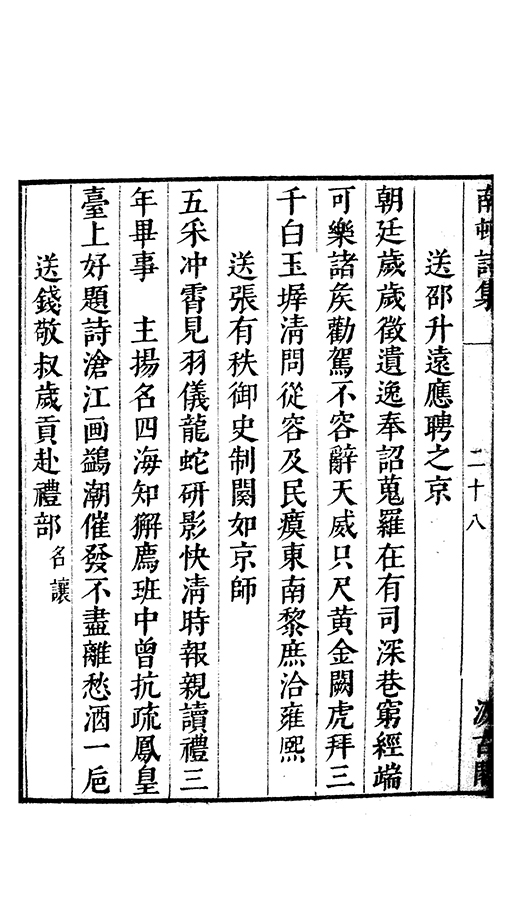 南邨詩集 二十八 汲古閣
送邵升遠應聘之京
朝廷歲歲徵遺逸奉詔蒐羅在有司深巷窮經端
可樂諸矦勸駕不容辭天威只尺黃金闕虎拜三
千白玉墀清問從容及民瘼東南黎庶洽雍熙
送張有秩御史制闋如京師
五采冲霄見羽儀龍蛇研影快清時報親讀禮三
年畢事 主揚名四海知獬廌班中曾抗疏鳳皇
臺上好題詩滄江画鷁潮催發不盡離愁酒一巵
送錢敬叔歲貢赴禮部 名讓